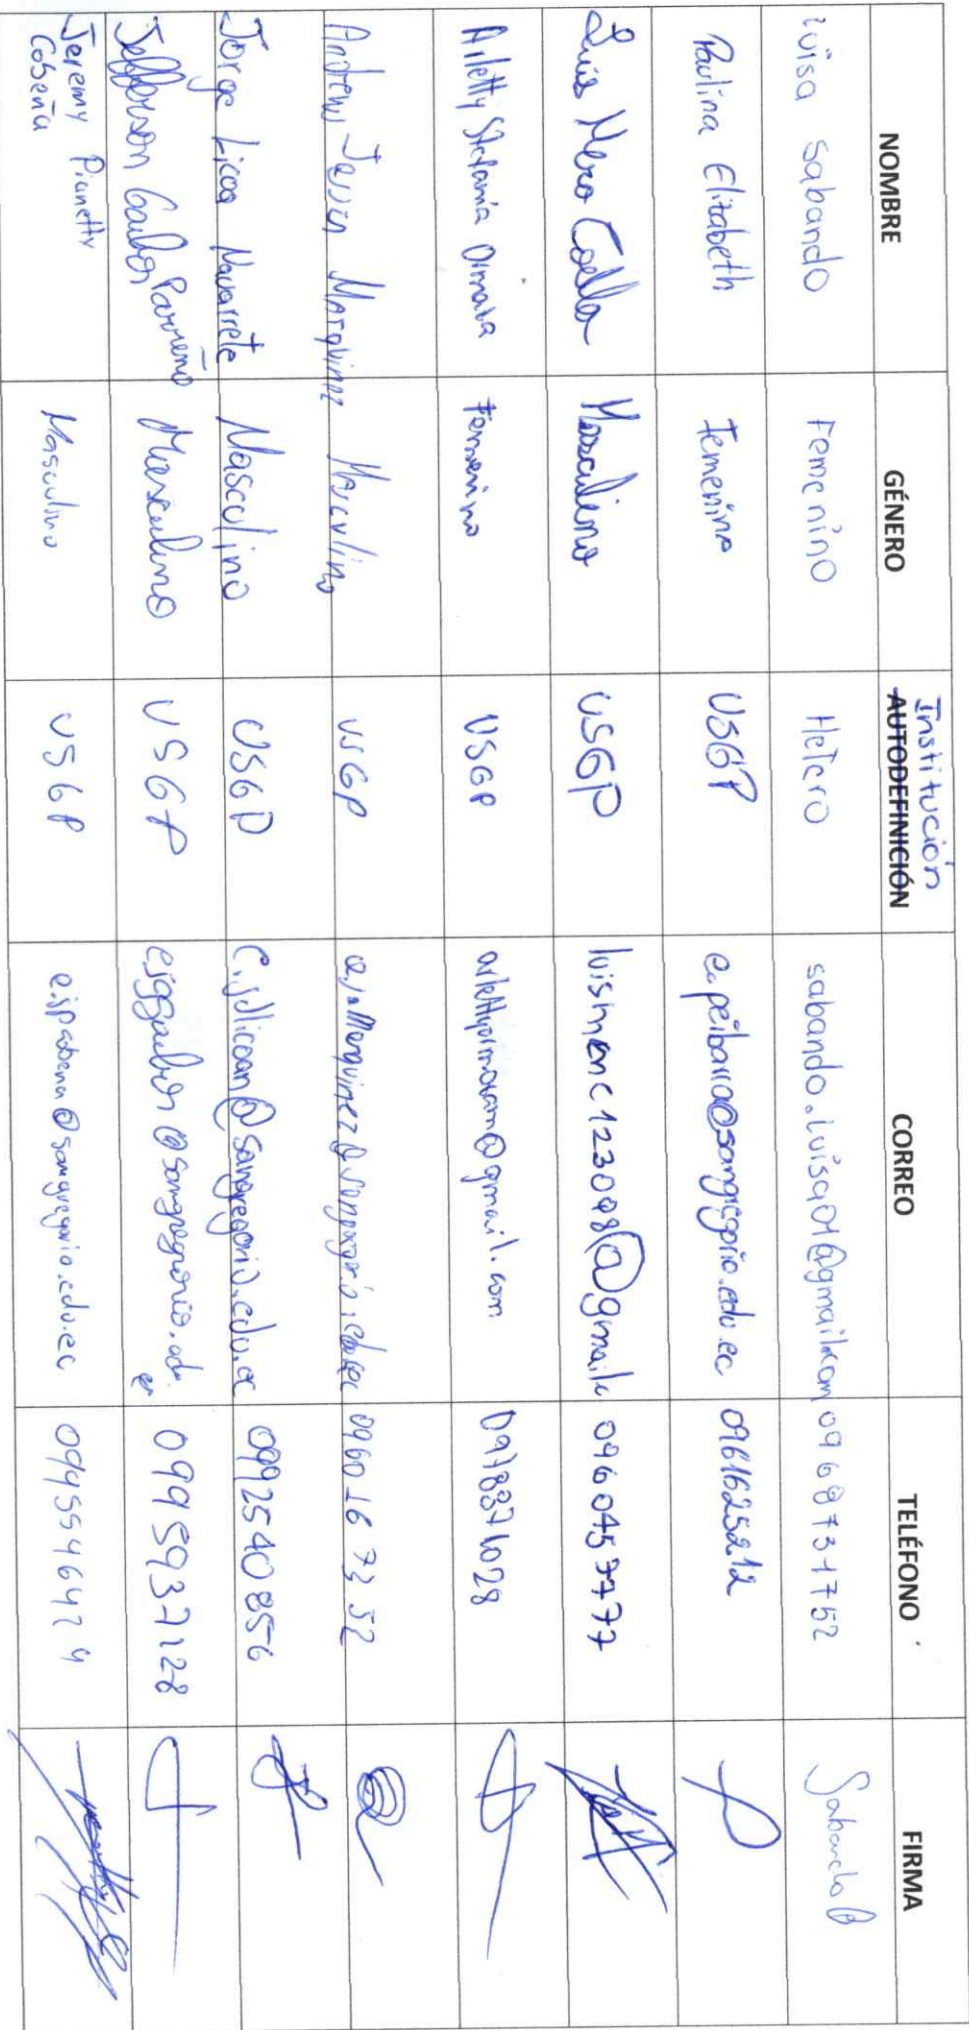 NOMBRE GÉNERO Institución AUTODEFINICIÓN CORREO TELÉFONO FIRMA
Luisa Sabando Femenino Hetero sabando.luisa01@gmail.com 0968731752 Sabando B
Paulina Elizabeth Femenina USGP e.peibarra@sangregorio.edu.ec 0961625212
Luis Mero Coello Masculino USGP luismenc123098@gmail. 0960457777
Arletty Stefanía Ormaza Femenino USGP arlettyormazam@gmail.com
Andrew Jesús Marquinez Masculino USGP 0960167352
Jorge Licoa Navarrete Masculino USGP e.jdlicoan@sangregorio.edu.ec 0992540856
Jefferson Gaibor Parreño Masculino USGP e.jggaibor@sangregorio.edu.ec 0995937128
Jeremy Pianetty Cobeña Masculino USGP e.jpcobena@sangregorio.edu.ec